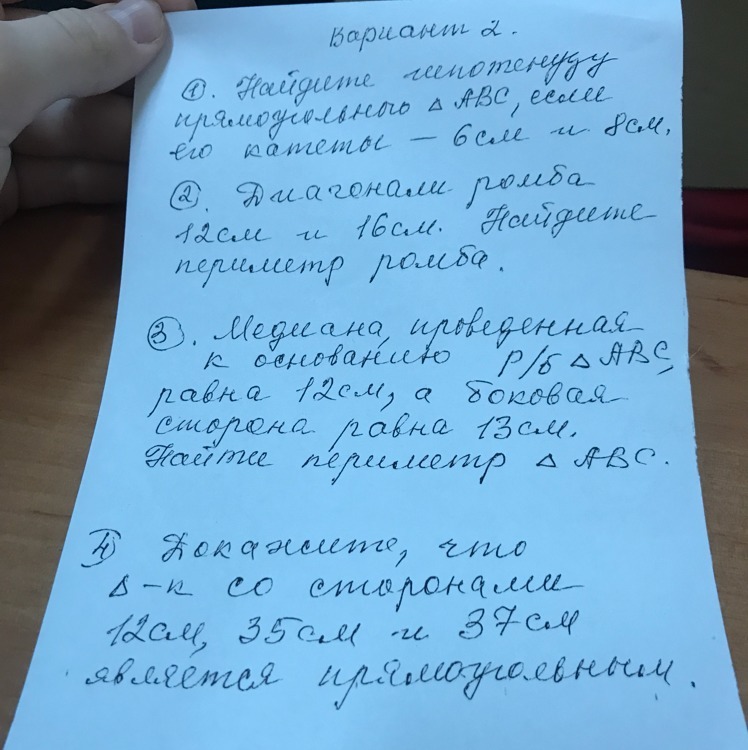 Вариант 2.
①. Найдите гипотенузу
прямоугольного △ АВС, если
его катеты – 6см и 8см.
②. Диагонали ромба
12см и 16см. Найдите
периметр ромба.
③. Медиана, проведенная
к основанию р/б △ АВС,
равна 12см, а боковая
сторона равна 13см.
Найти периметр △ АВС.
④ Докажите, что
△-к со сторонами
12см, 35см и 37см
является прямоугольным.